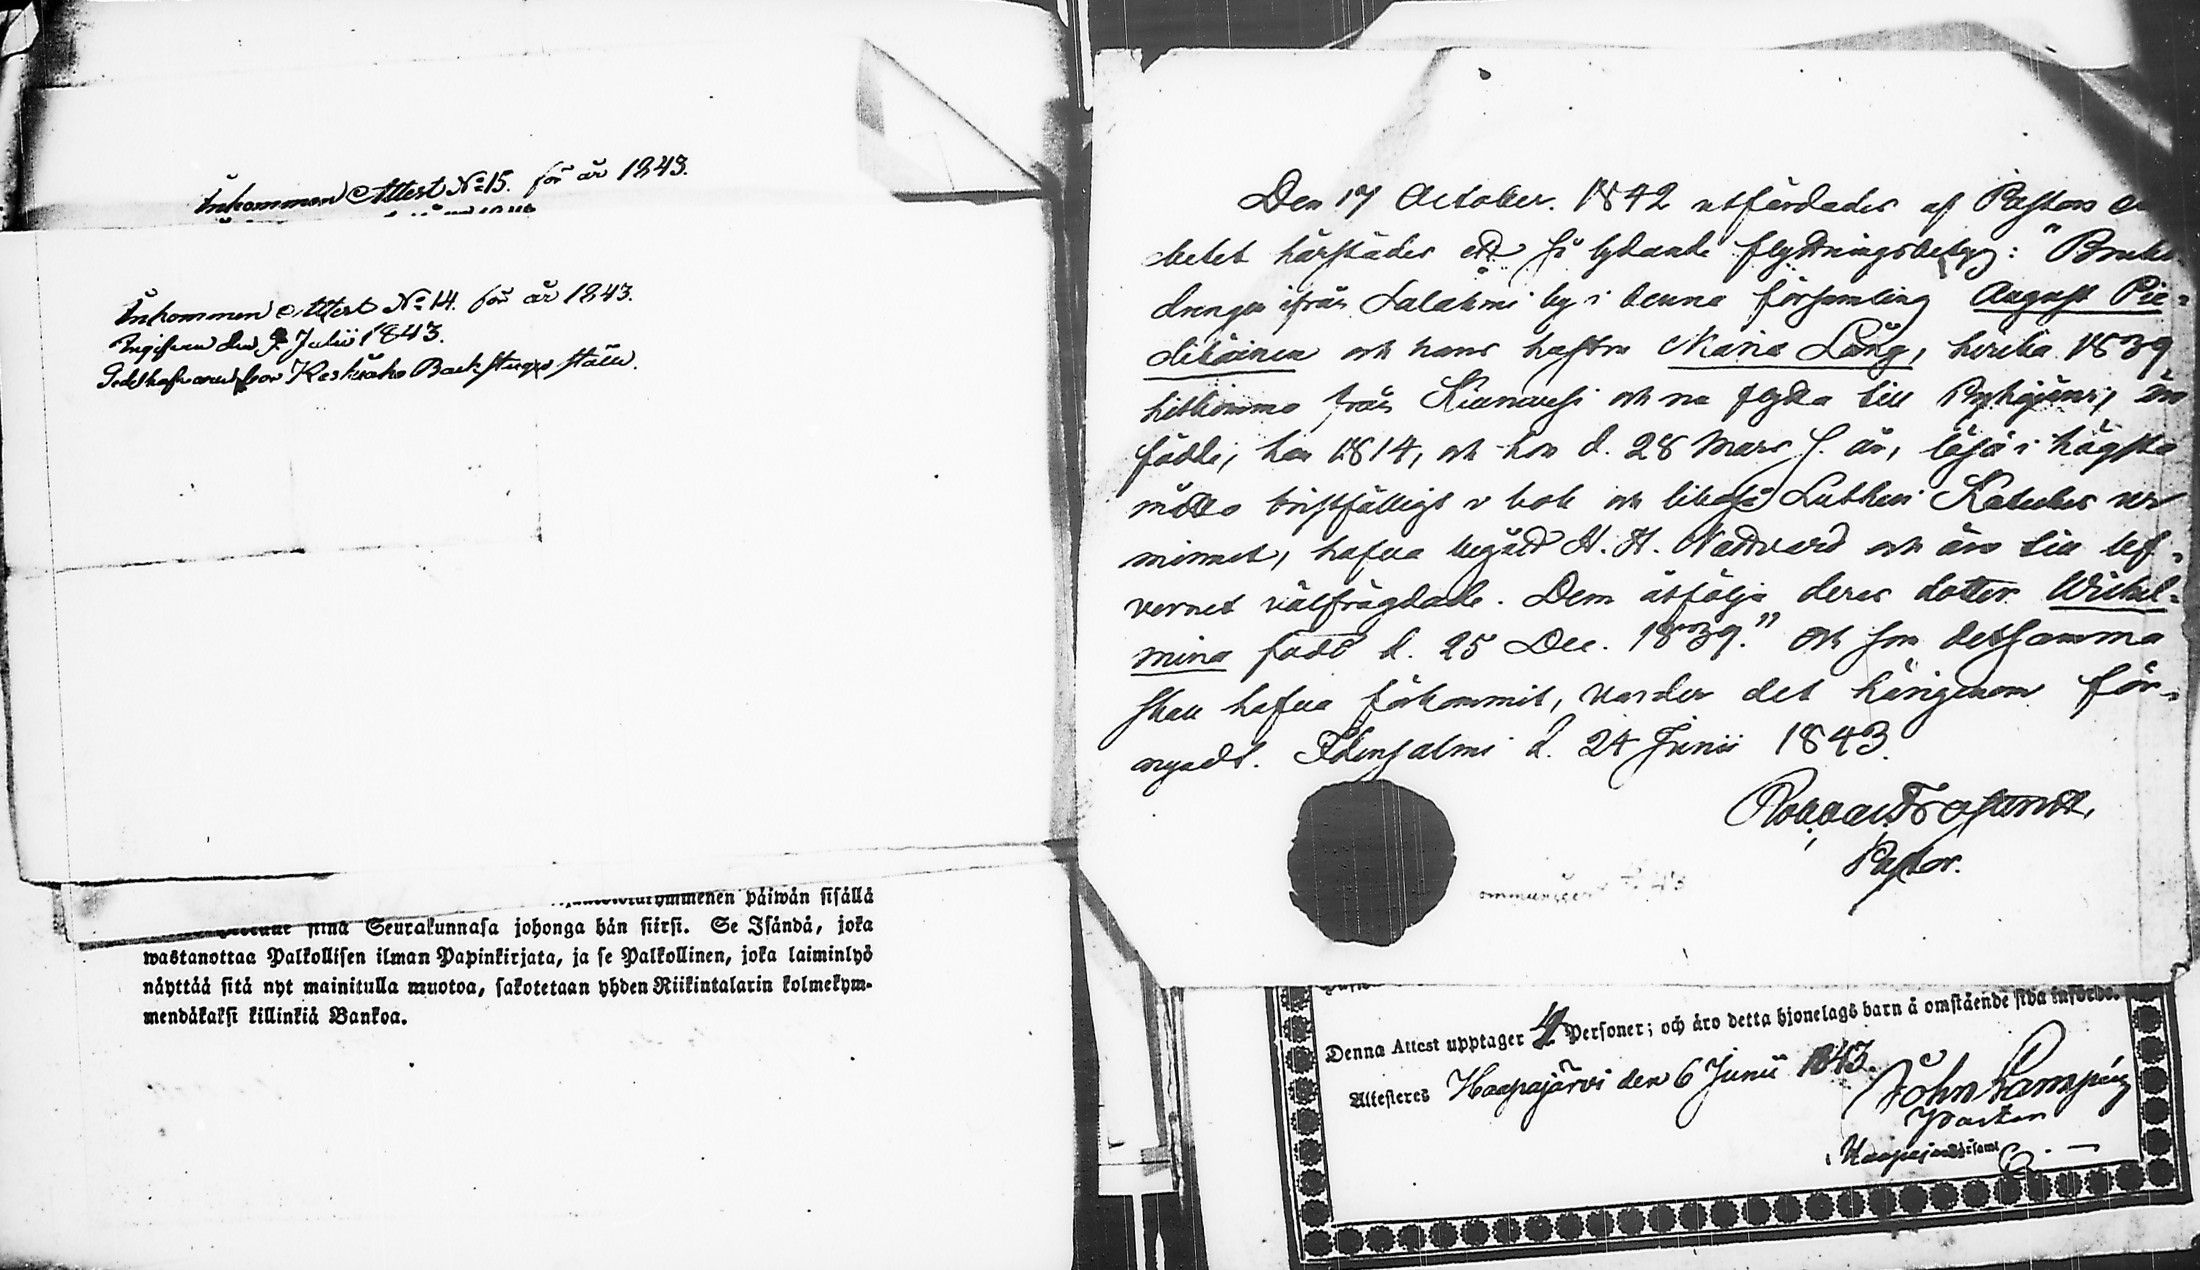 Inkommen Attest No 15. för år 1843.
Inkommen Attest No 14. för år 1843.
Ingifven den 9 Julii 1843.
Keskiaho Backstugu ställe.
päiwän sisällä
siinä Seurakunnasa johonga hän siirsi. Se Isändä, joka
wastanottaa Palkollisen ilman Papinkirjata, ja se Palkollinen, joka laiminlyö
näyttää sitä nyt mainitulla muotoa, sakotetaan yhden Riikintalarin kolmekym-
mendäkaksi killinkiä Bankoa.
Den 17 October. 1842 utfärdades af Pastors
betet härstädes ett så lydande flyttningsbetyg: "Bruks
drengen ifrån Salahmi by i denna församling August Pie-
dikäinen och hans hustru Maria Lång, hvilka 1839
hitkommo från Kianvesi och nu flytta till Pyhäjärvi, äro
födde, han 1814, och hon d. 28 Mars s. år, läsa i högsta
måtto bristfälligt i bok och likaså Lutheri Kateches ur
minnet, hafva begådt H. H. Nattvard och äro till lef-
vernet välfrägdade. Dem åtfölja deras dotter Wilhel-
mina född d. 25 Dec. 1839." Och som detsamma
skall hafva förkommit, varder det härigenom för-
nyadt. Idensalmi d. 24 Junii 1843.
Pastor.
Denna Attest upptager 4 Personer; och äro detta hjonelags barn å omstående sida införde.
Attesteres Haapajärvi den 6 Junii 1843.
John Lampén
Pastor